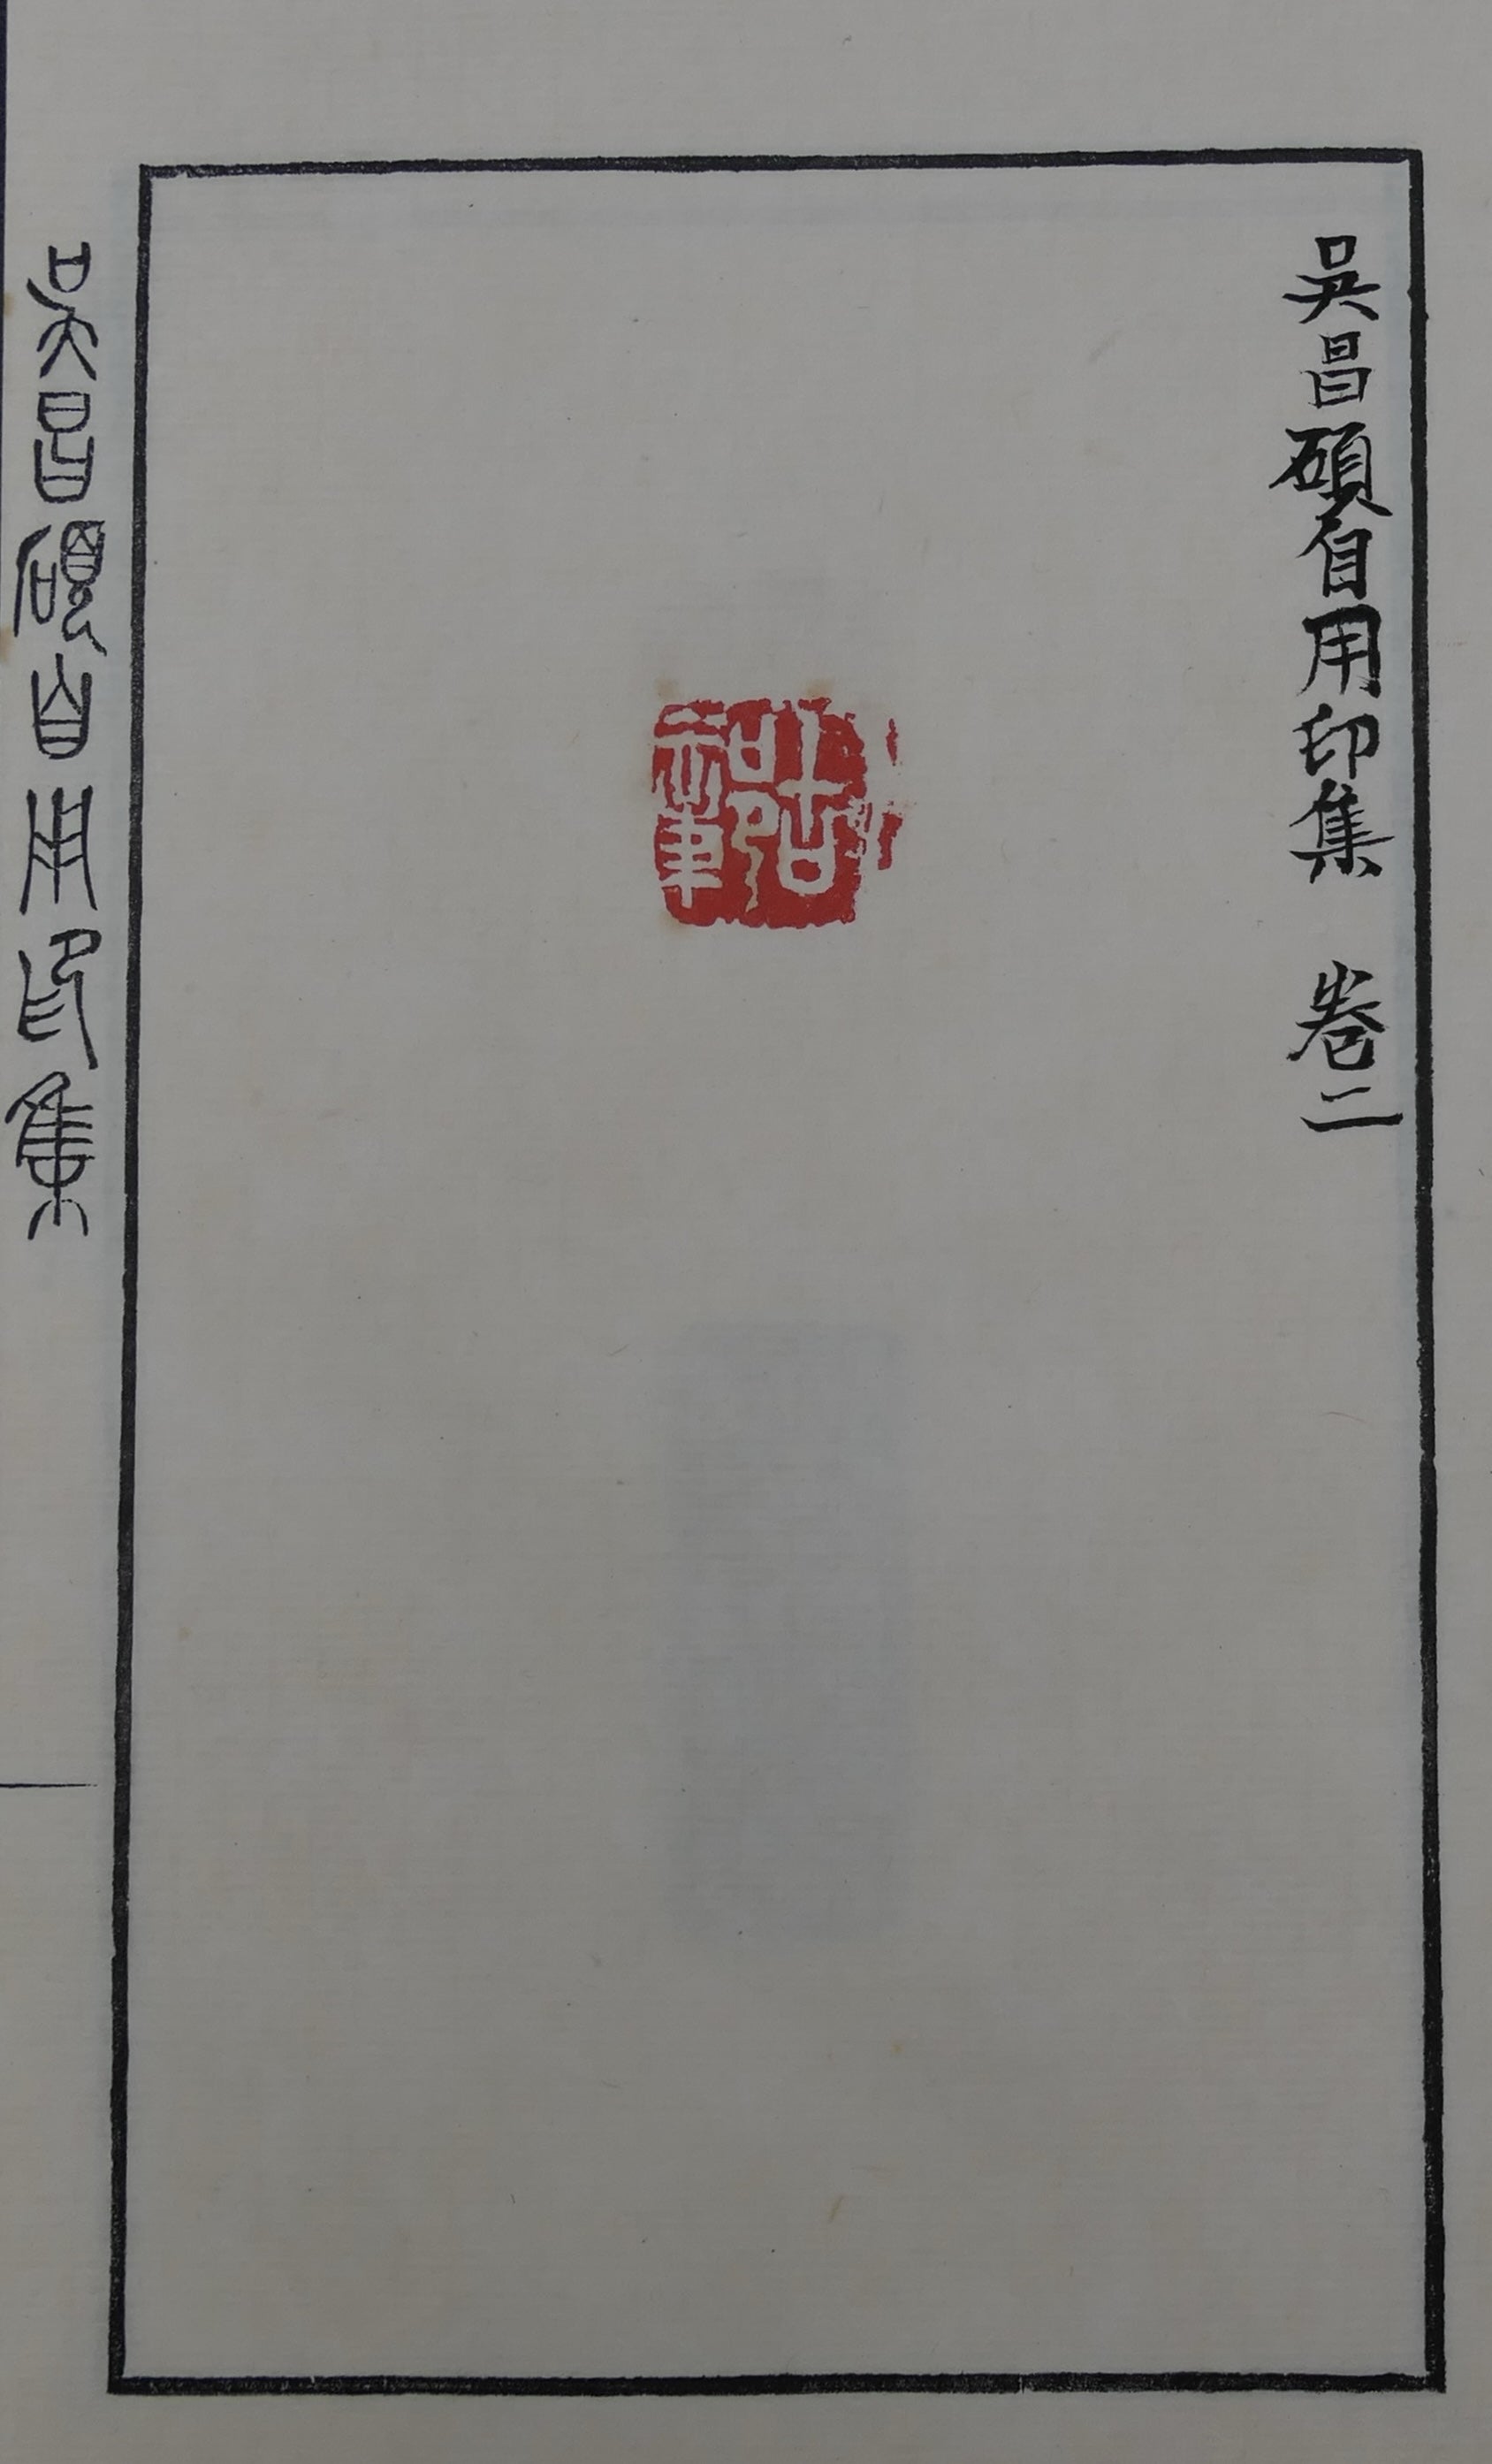 吳昌碩自用印集　卷二
吳昌碩自用印集